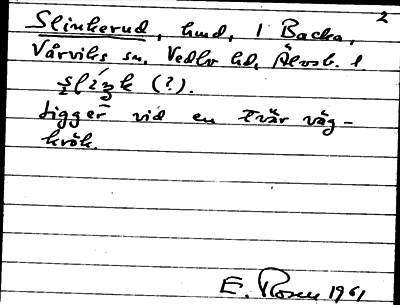 2
Slinkerud, hmd, 1 Backa,
Vårviks sn, Vedbo hd, Älvsb. l.
(?).
Ligger vid en tvär väg-
krök.
E. Rosen 1961